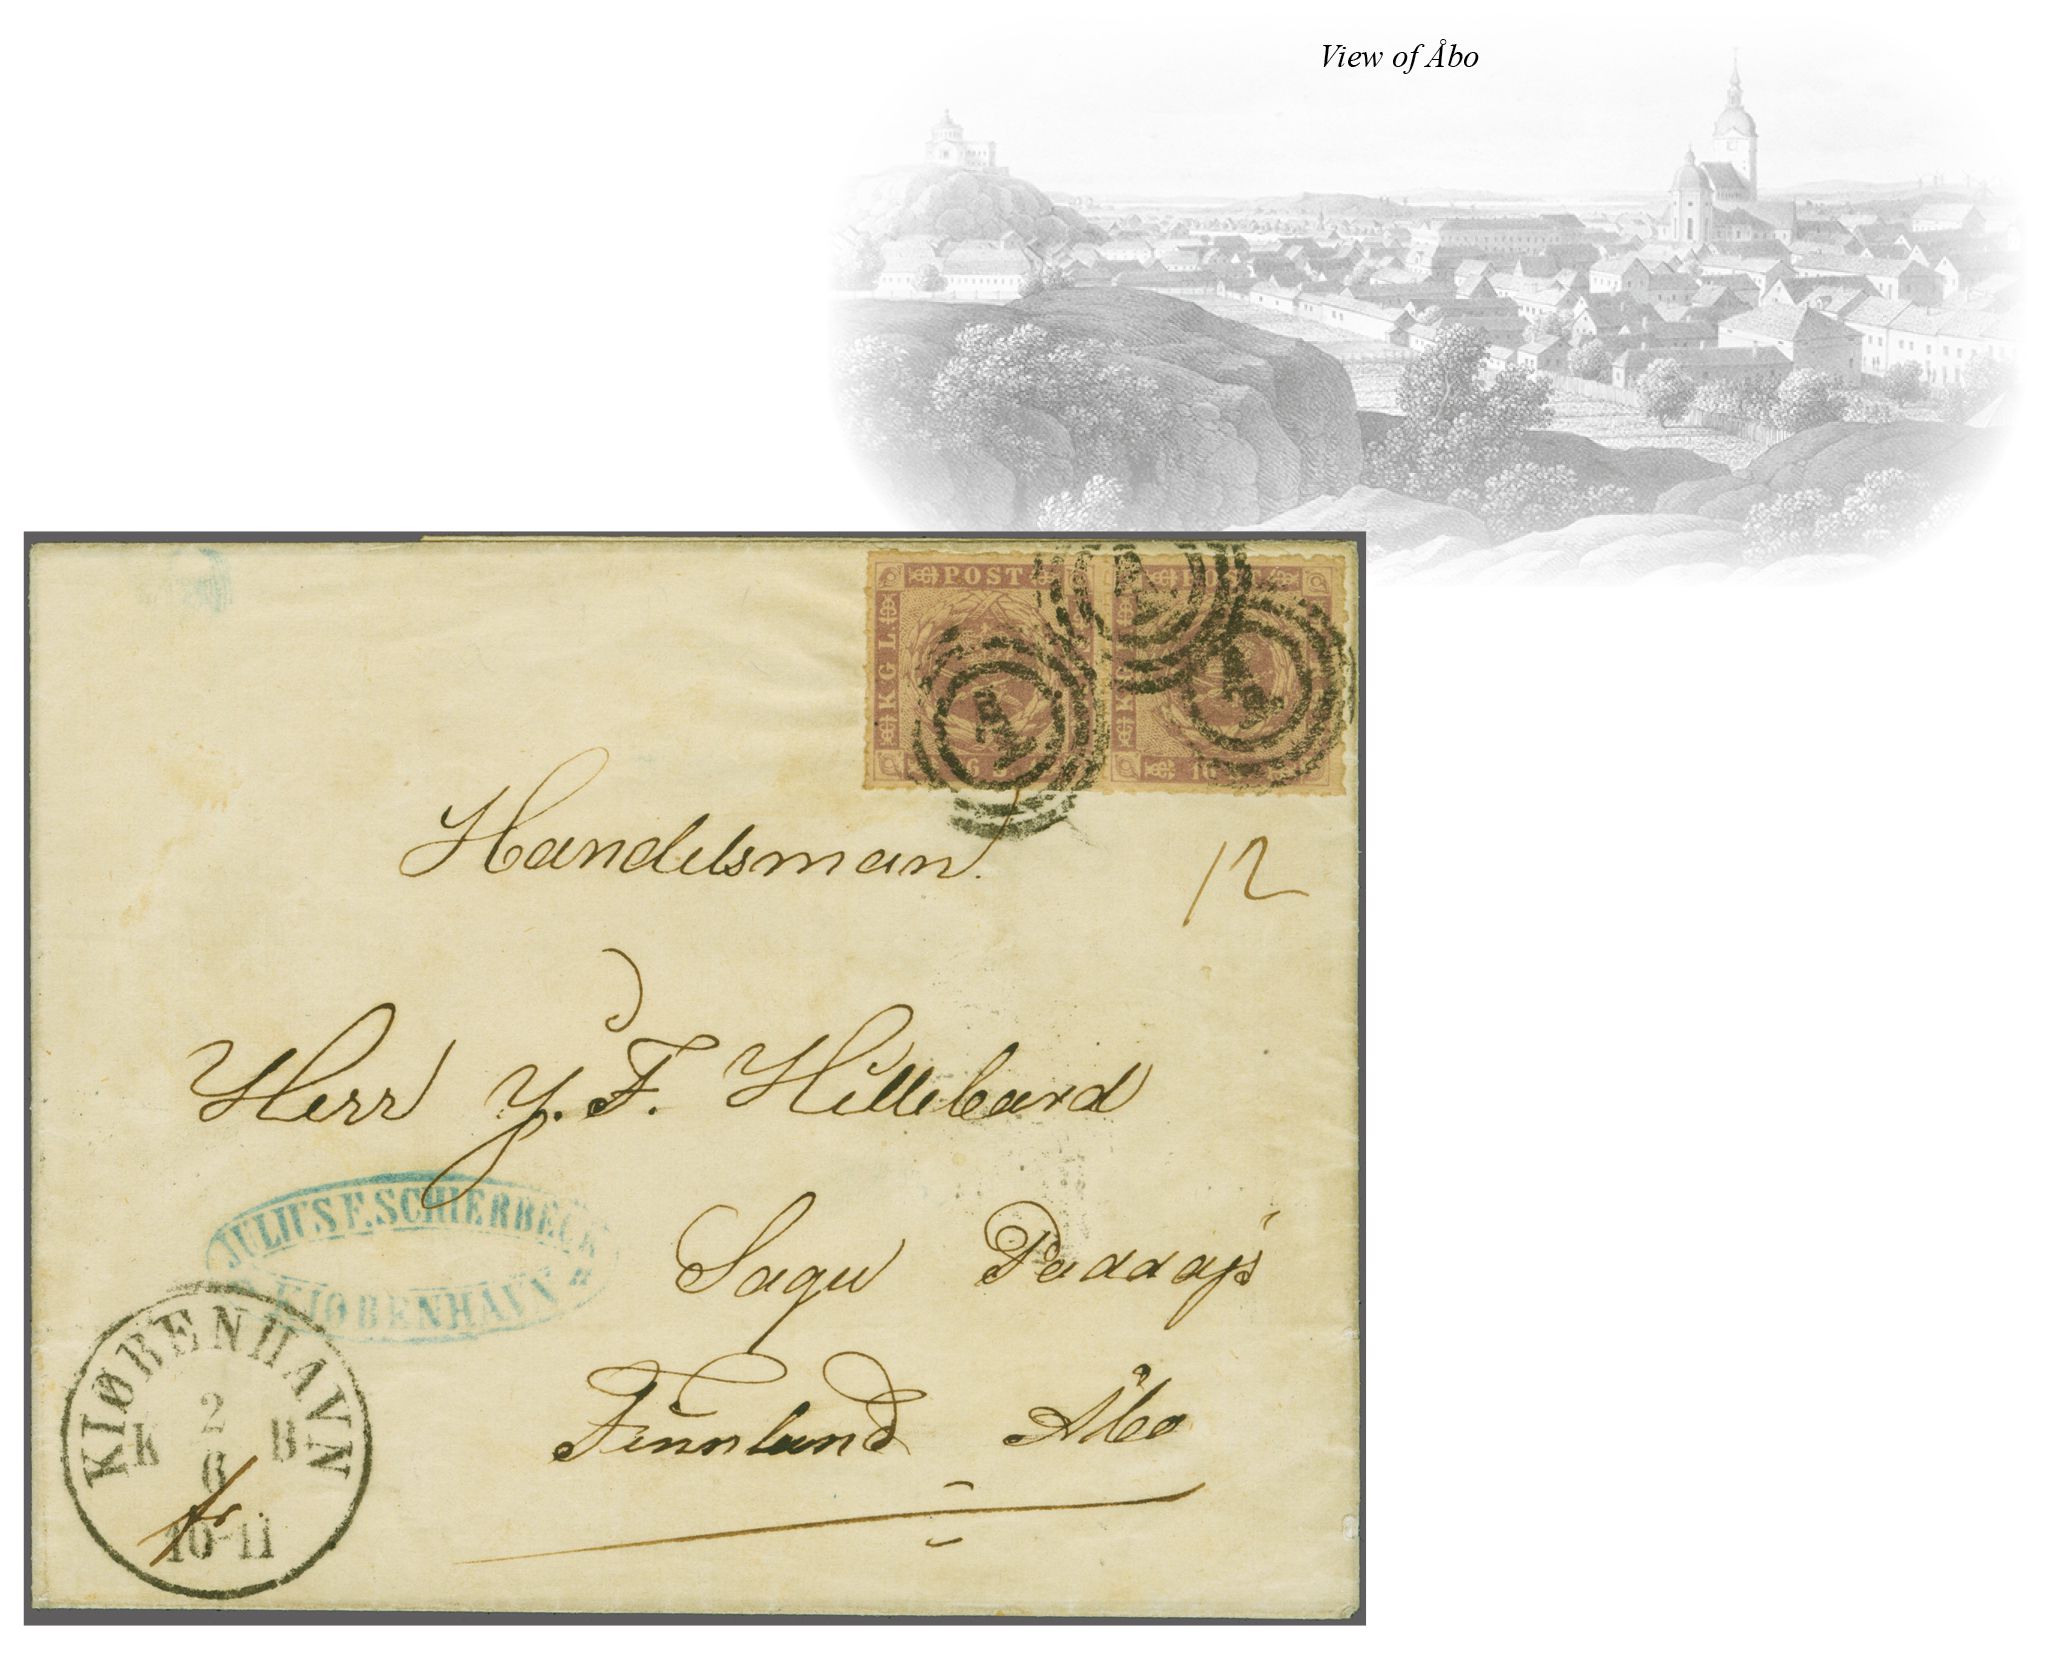 View of Åbo
POST POST
KGL K
16 S. 16
1 1 1
Handelsman.
12
Herr J. F. Hillebard
Sagu Paddais
JULIUS F. SCHIERBECK
KIØBENHAVN
Finnland Åbo
KIØBENHAVN
K 2 B
6
fr.
10-11